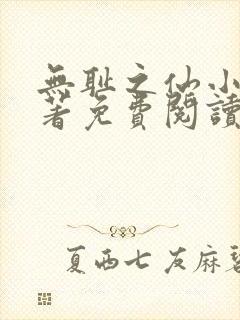 無耻之仙小
著免費閱讀
夏西七友麻